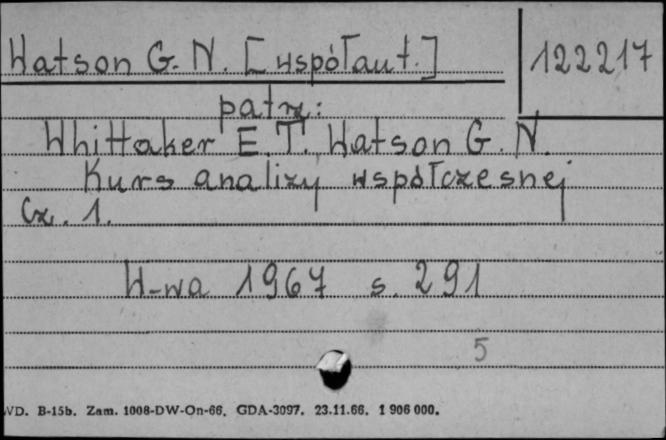 Watson G. N. [współaut.]
122217
patrz:
Whittaker E. T. Watson G. N.
Kurs analizy współczesnej
Cz. 1.
W-wa 1967 s. 291
5
WD. B-15b. Zam. 1008-DW-On-66. GDA-3097. 23.11.66. 1 906 000.